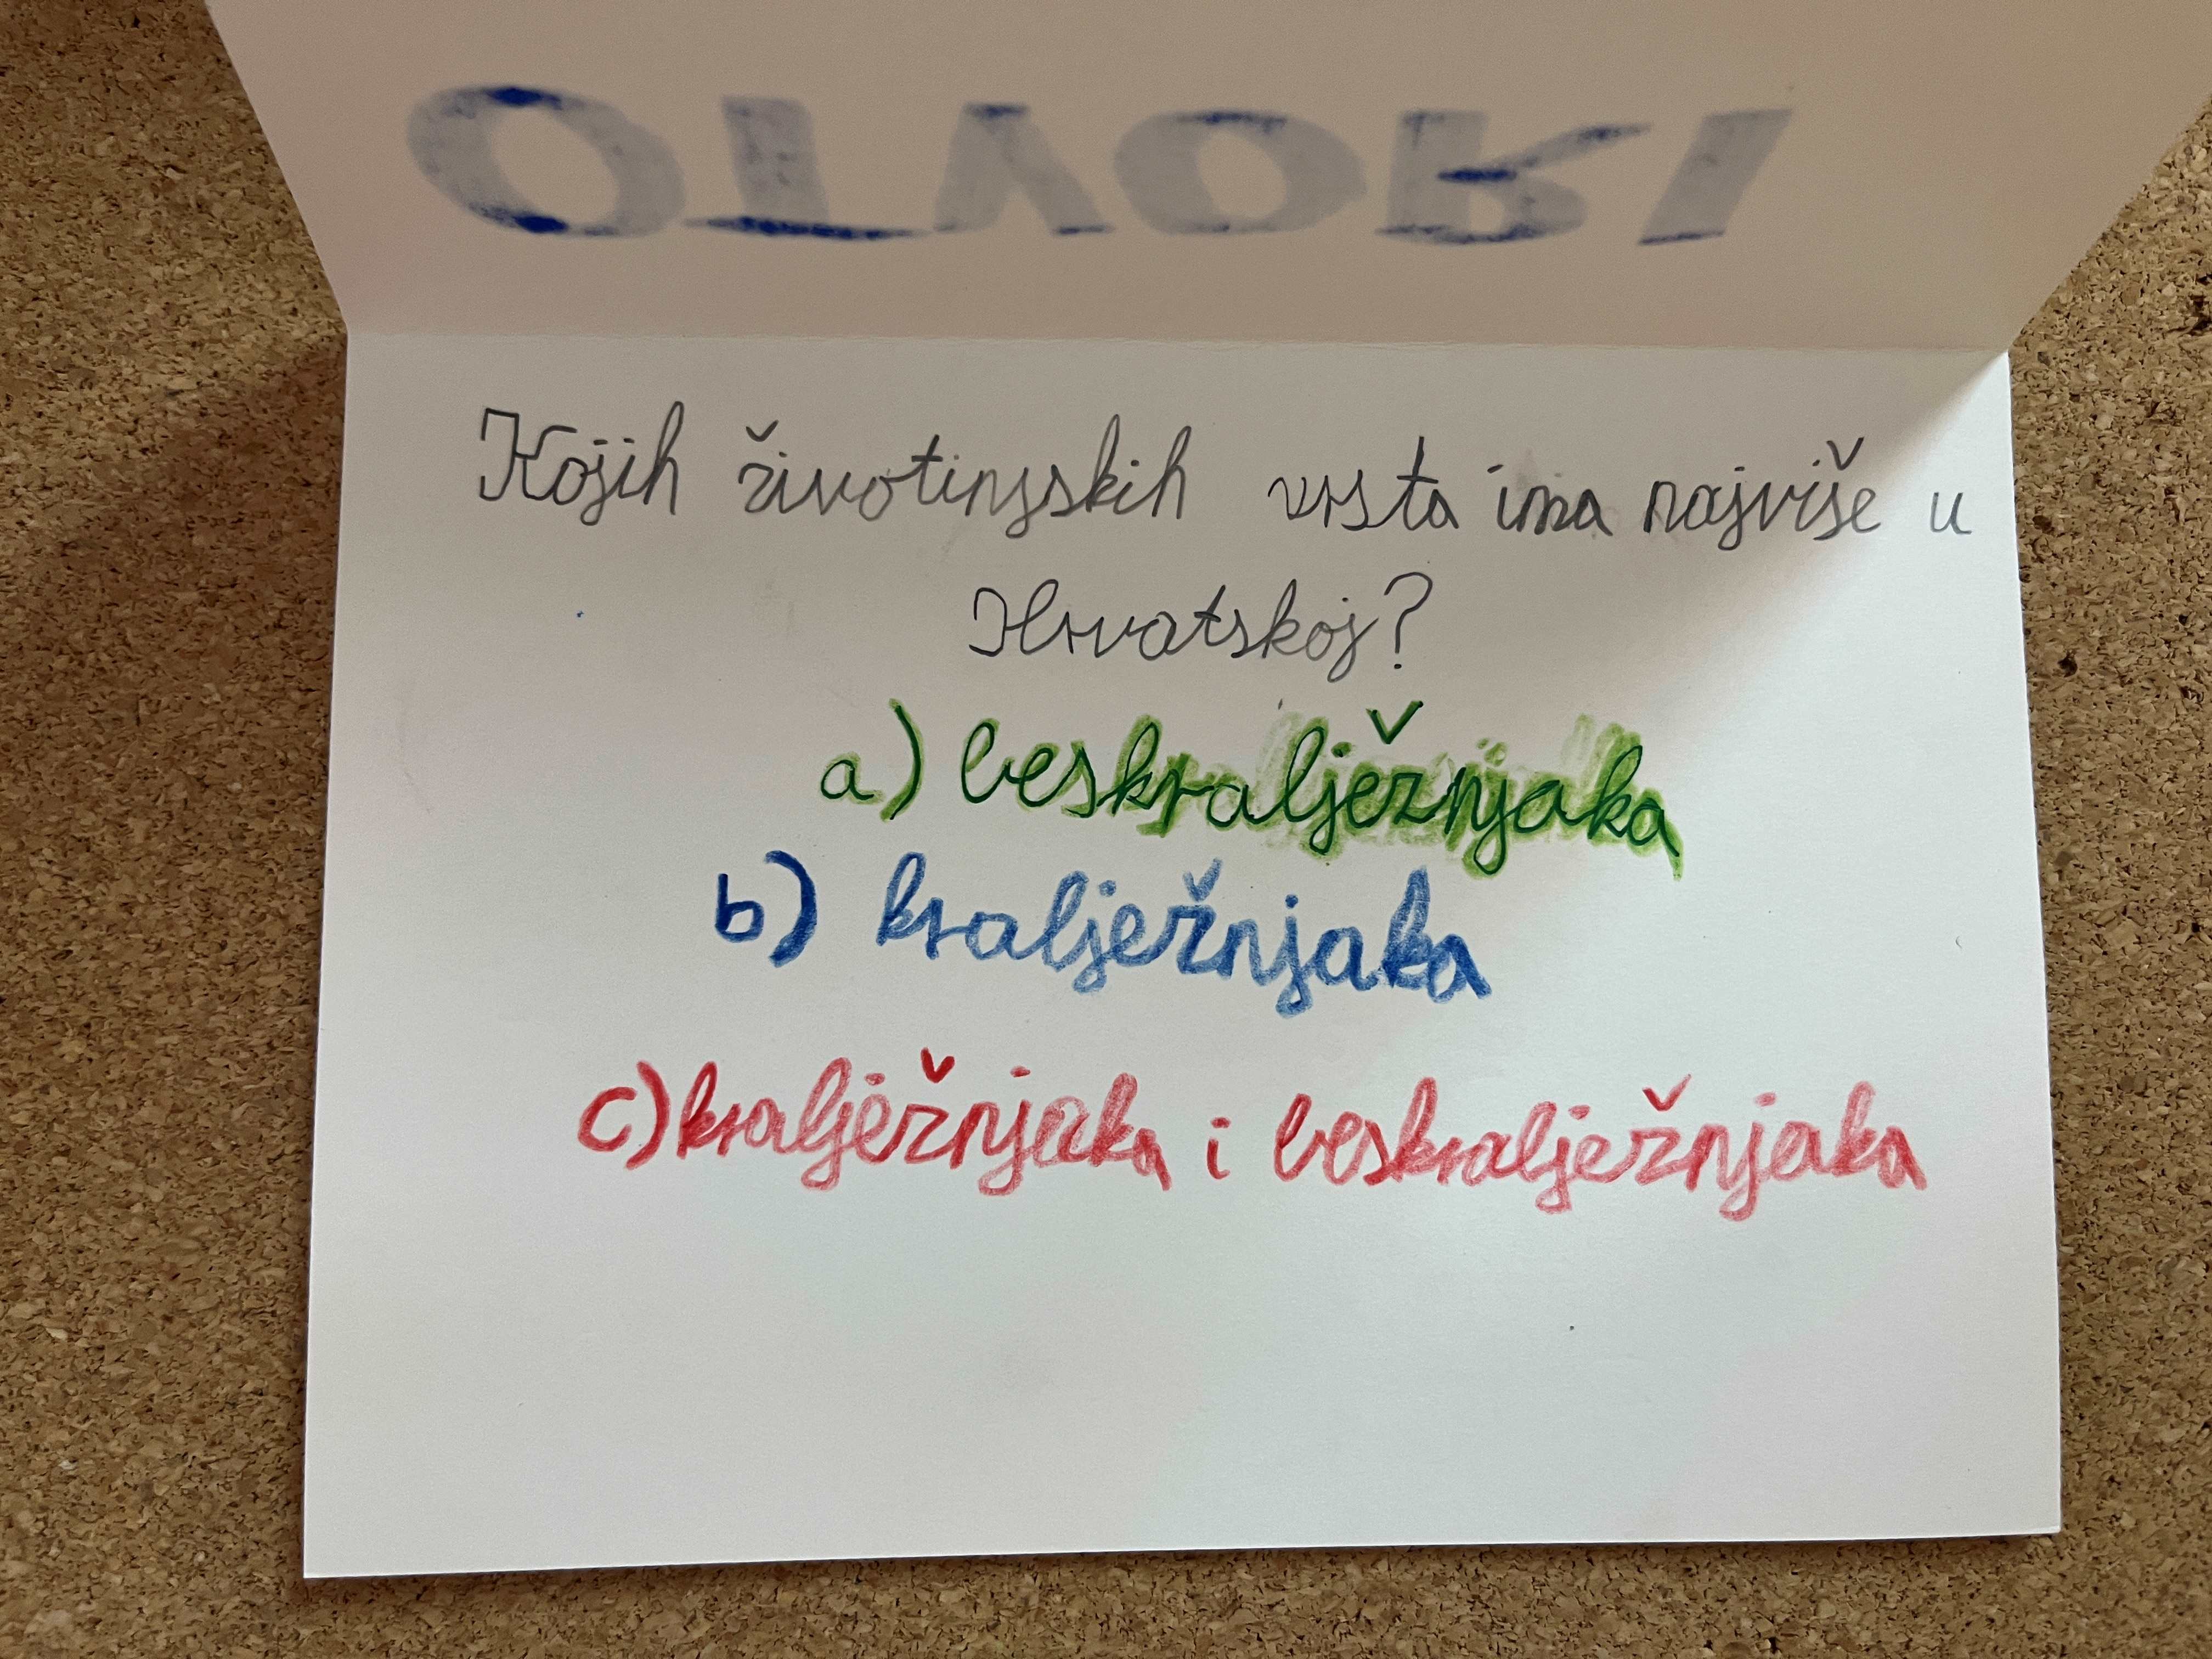 OTVORI
Kojih životinjskih vrsta ima najviše u
Hrvatskoj?
a) beskralježnjaka
b) kralježnjaka
c) kralježnjaka i beskralježnjaka